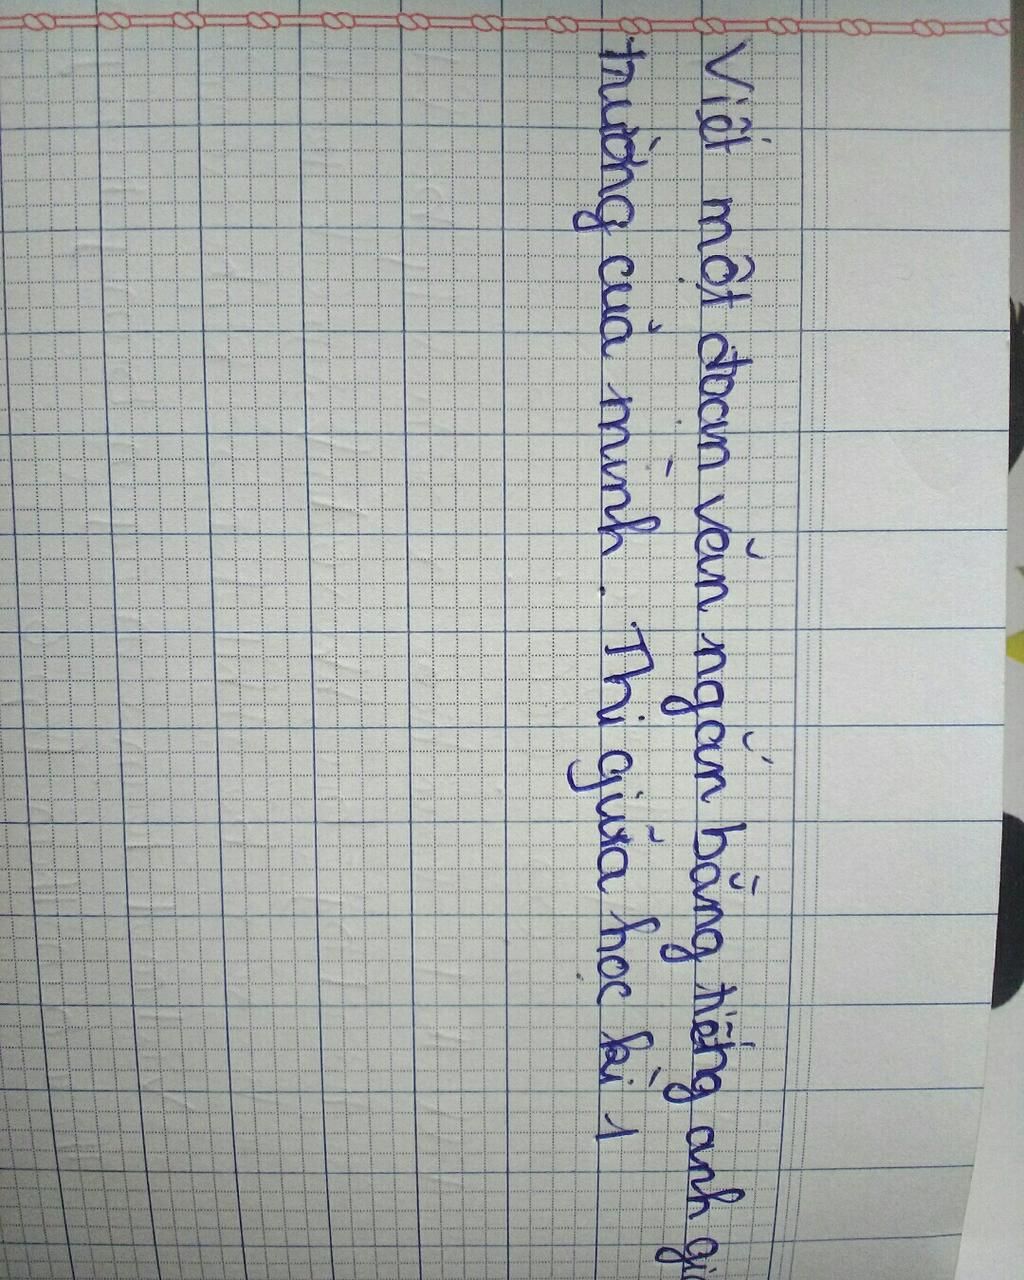 Viết một đoạn văn ngắn bằng tiếng anh
trường của mình. Thi giữa học kì 1